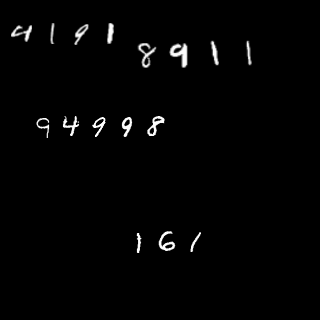 4191
8911
94998
161